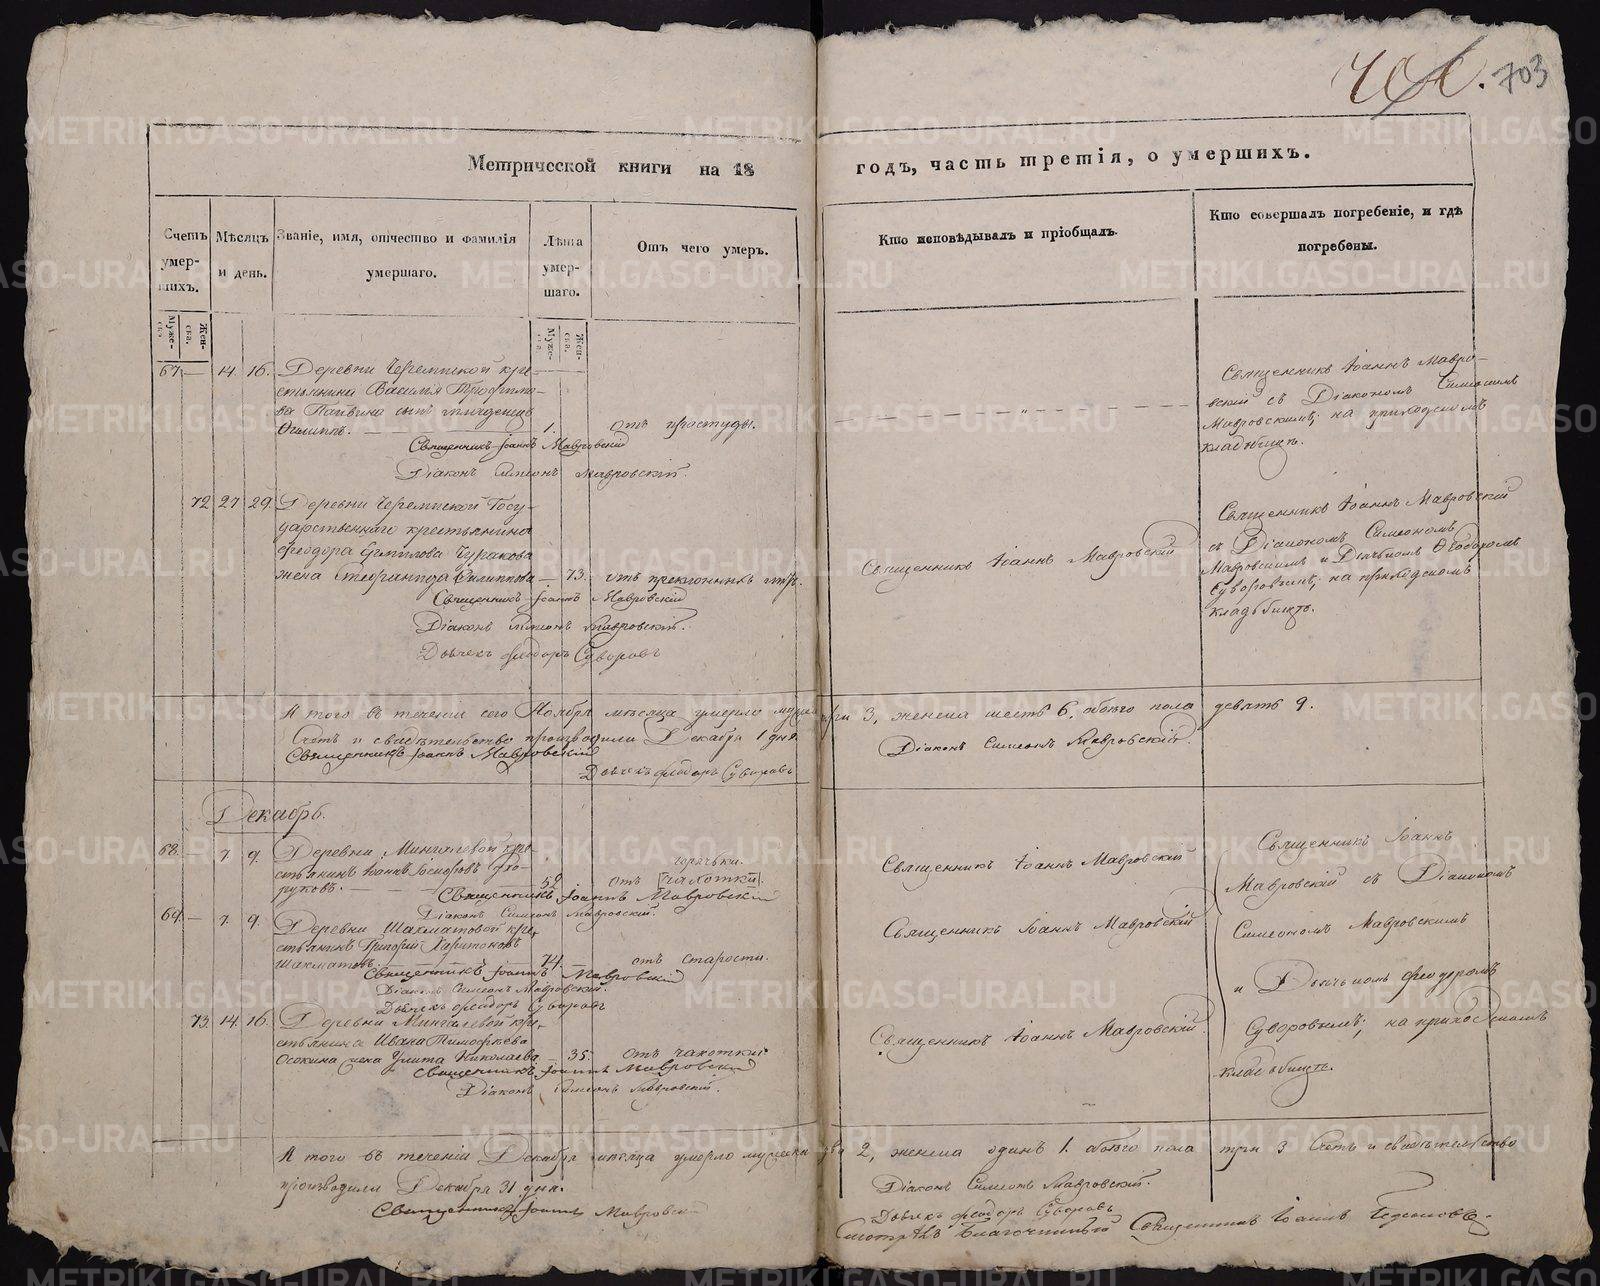 703
Метрической книги на 18 годъ, часть третія, о умершихъ.
Счетъ умер-
шихъ.
Мѣсяцъ
и день.
Званіе, имя, отчество и фамилія
умершаго.
Лѣта
умер-
шаго.
Отъ чего умеръ.
Кто исповѣдывалъ и пріобщалъ.
Кто совершалъ погребеніе, и гдѣ
погребены.
Муже-
ска.
Жен-
ска.
Муже-
ска.
Жен-
ска.
67. — 14. 16. Деревни Черемиской кре-
стьянина Василія Трофимо-
ва сынъ младенецъ
Филиппъ. 1. отъ простуды.
Священникъ Іоаннъ Мавровскій
Діаконъ Симеонъ Мавровскій.
Священникъ Іоаннъ Мавро-
вскій съ Діакономъ Симеономъ
Мавровскимъ; на приходскомъ
кладбищѣ.
72 27 29. Деревни Черемиской Госу-
дарственнаго крестьянина
Феодора Чуракова
жена Филиппова — 73. отъ преклонныхъ
Священникъ Іоаннъ Мавровскій
Діаконъ Симеонъ Мавровскій.
Дьячекъ Феодоръ Суворовъ
Священникъ Іоаннъ Мавровскій
Священникъ Іоаннъ Мавровскій
съ Діакономъ Симеономъ
Мавровскимъ и Дьячкомъ Феодоромъ
Суворовымъ; на приходскомъ
кладбищѣ.
А того въ теченіи сего Ноября мѣсяца умерло мужеска три 3, женска шесть 6, обоего пола девять 9.
Счетъ и свидѣтельство производили Декабря 1 дня.
Священникъ Іоаннъ Мавровскій
Діаконъ Симеонъ Мавровскій.
Дьячекъ Феодоръ Суворовъ
Декабрь.
68. — 7. 9. Деревни Мингалевой кре-
стьянинъ Іоаннъ
52 отъ горячьки. [чахотки].
Священникъ Іоаннъ Мавровскій
Діаконъ Симеонъ Мавровскій.
Священникъ Іоаннъ Мавровскій
69. — 7. 9. Деревни Шахматовой кре-
стьянинъ Григорій Харитоновъ
Шахматовъ. 74. отъ старости.
Священникъ Іоаннъ Мавровскій
Діаконъ Симеонъ Мавровскій.
Дьячекъ Феодоръ Суворовъ
Священникъ Іоаннъ Мавровскій
73. 14. 16. Деревни Мингалевой кре-
стьянина Ивана Тимофѣева
Осокина жена Улита Николаева — 35. отъ чахотки.
Священникъ Іоаннъ Мавровскій
Діаконъ Симеонъ Мавровскій.
Священникъ Іоаннъ Мавровскій.
Священникъ Іоаннъ
Мавровскій съ Діакономъ
Симеономъ Мавровскимъ
и Дьячкомъ Феодоромъ
Суворовымъ; на приходскомъ
кладбищѣ.
А того въ теченіи Декабря мѣсяца умерло мужеска два 2, женска одинъ 1. обоего пола три 3 Счетъ и свидѣтельство
производили Декабря 31 дня.
Священникъ Іоаннъ Мавровскій
Діаконъ Симеонъ Мавровскій.
Дьячекъ Феодоръ Суворовъ
Смотрѣлъ Благочинный Священникъ Іоаннъ
METRIKI.GASO-URAL.RU